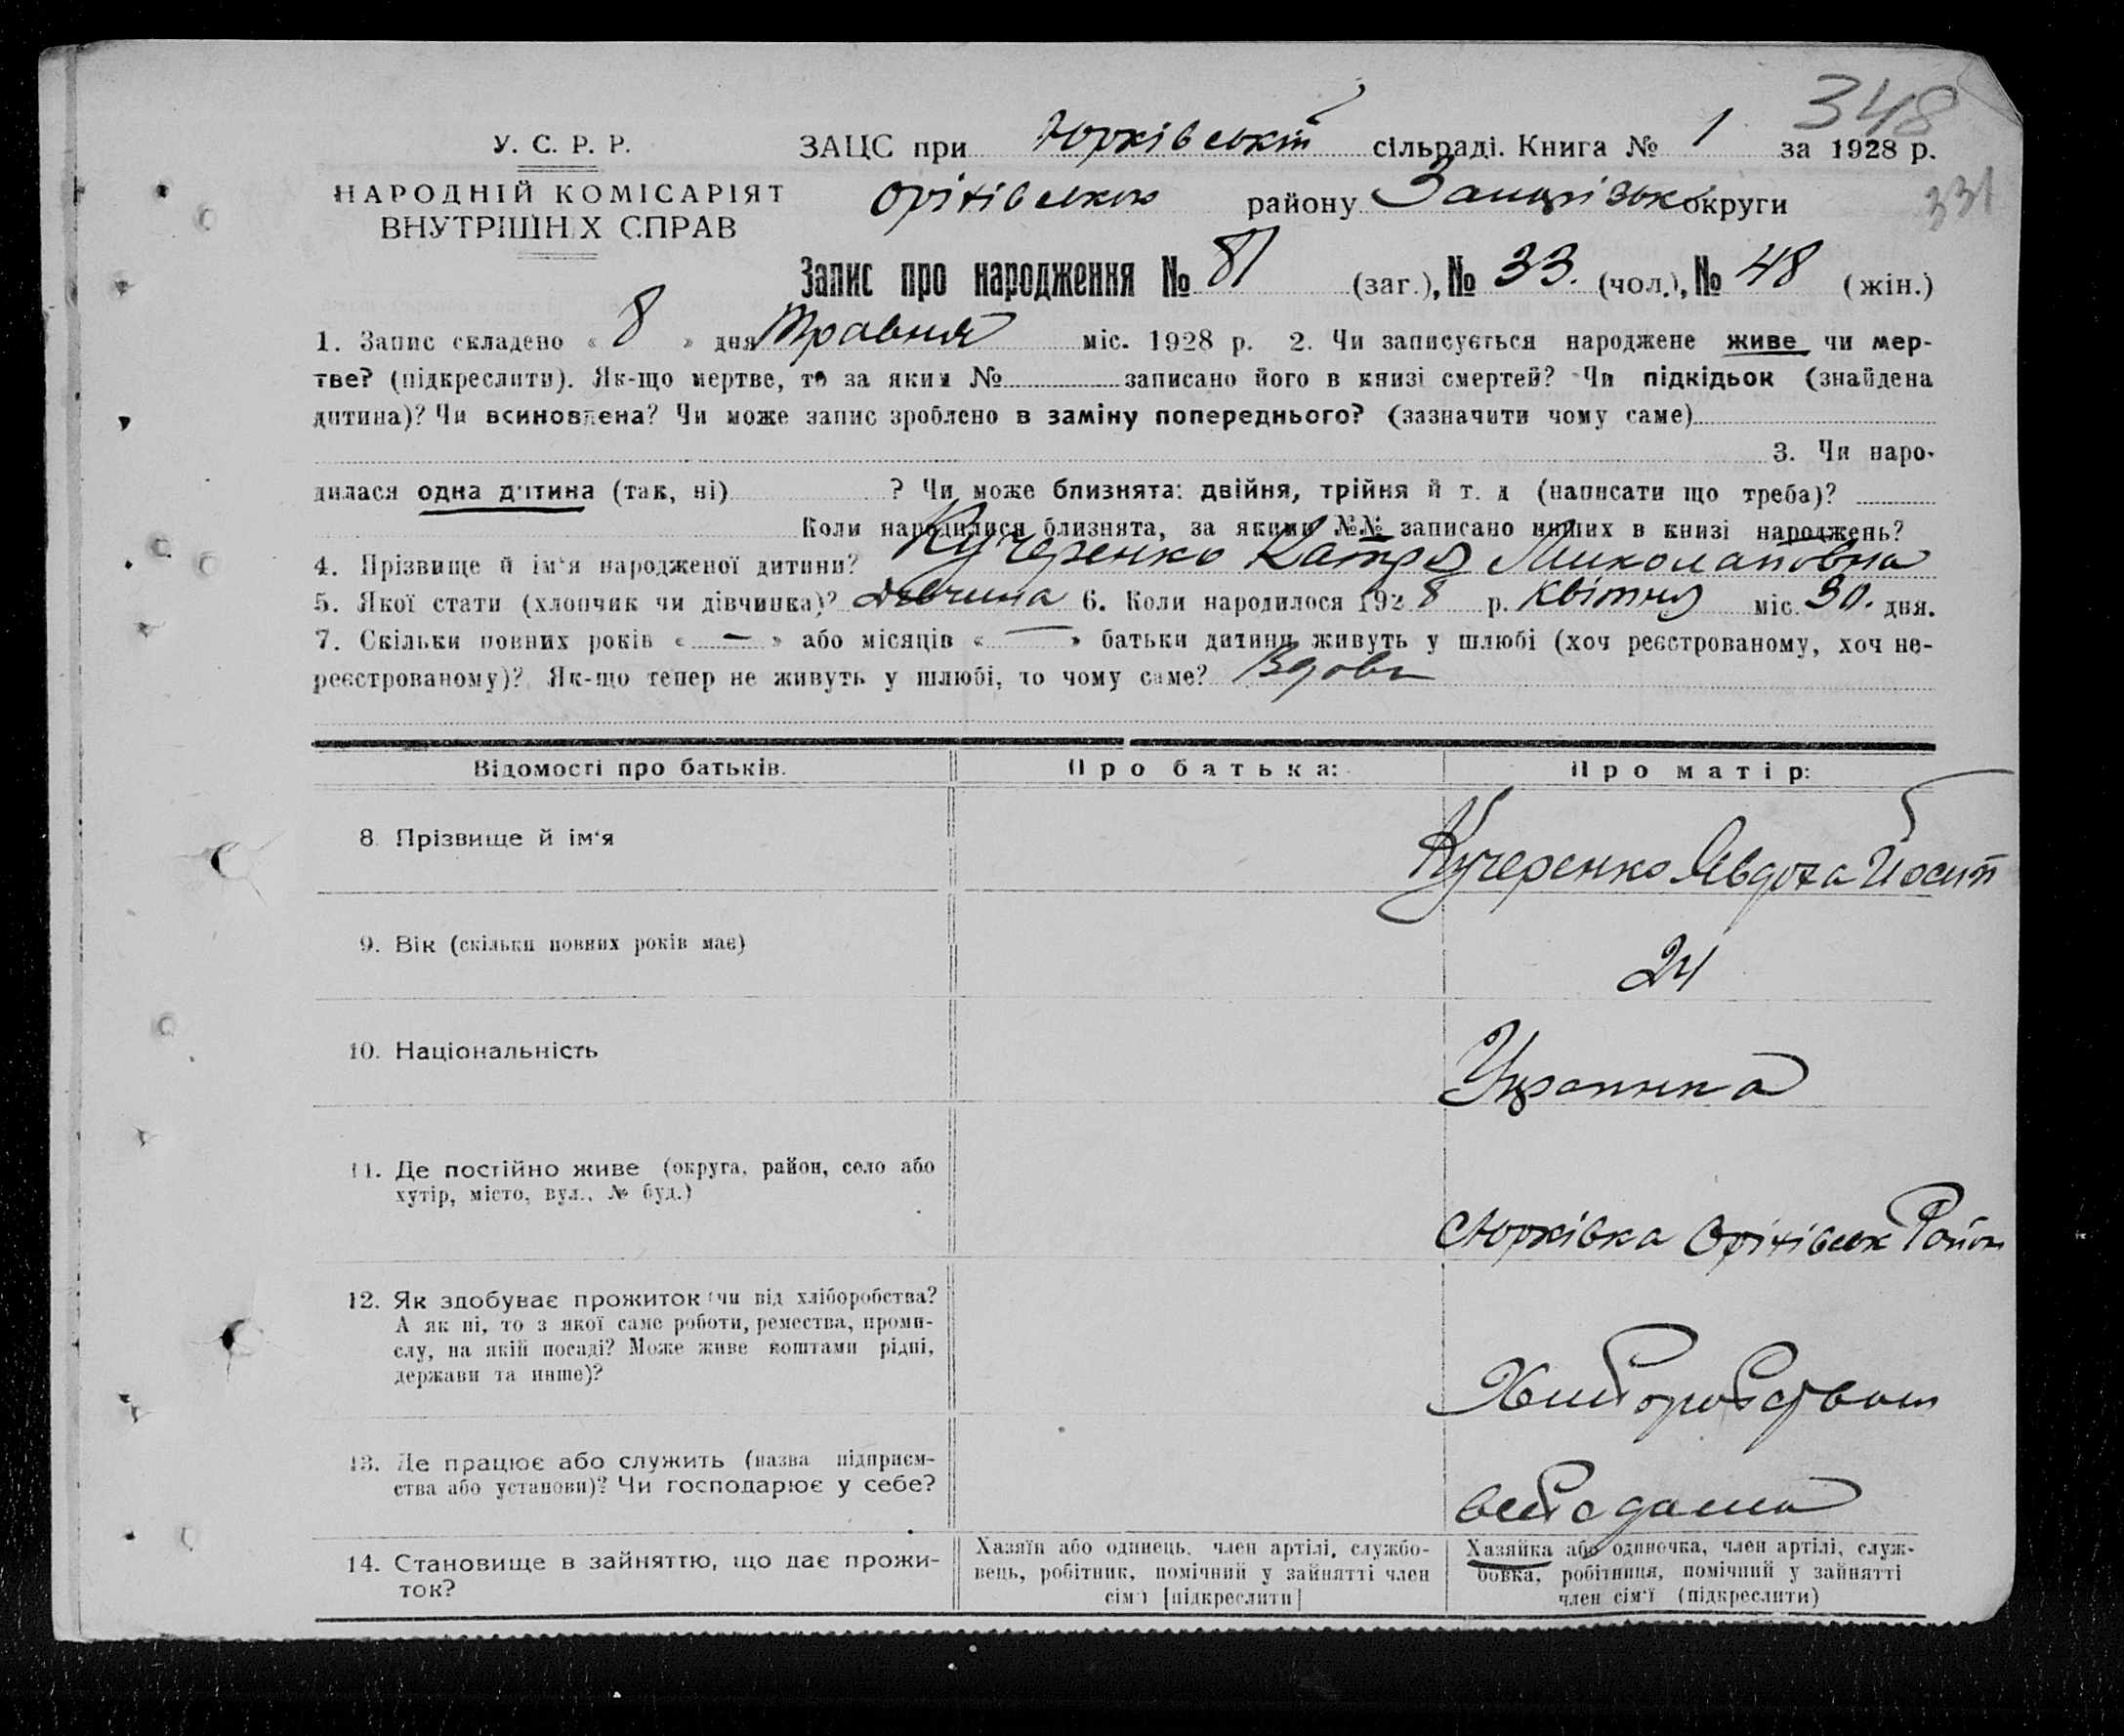 348
У. С. Р. Р.
ЗАЦС при Юрківській сільраді. Книга № 1 за 1928 р.
331
НАРОДНІЙ КОМІСАРІЯТ
ВНУТРІШНІХ СПРАВ
Оріхівського району Запорізьк округи
Запис про народження № 81 (заг.), № 33. (чол.), № 48 (жін.)
1. Запис складено « 8 » дня Травня міс. 1928 р. 2. Чи записується народжене живе чи мер-
тве? (підкреслити). Як-що мертве, то за яким № записано його в книзі смертей? Чи підкідьок (знайдена
дитина)? Чи всиновлена? Чи може запис зроблено в заміну попереднього? (зазначити чому саме)
3. Чи наро-
дилася одна дитина (так, ні) ? Чи може близнята: двійня, трійня й т. д (написати що треба)?
Коли народилися близнята, за якими №№ записано инших в книзі народжень?
4. Прізвище й ім‘я народженої дитини? Кучеренко Катря Миколаївна
5. Якої стати (хлопчик чи дівчинка)? Дівчина 6. Коли народилося 1928 р. Квітня міс. 30. дня.
7. Скільки повних років « — » або місяців « — » батьки дитини живуть у шлюбі (хоч реєстрованому, хоч не-
реєстрованому)? Як-що тепер не живуть у шлюбі, то чому саме? Вдова
Відомості про батьків.
Про батька:
Про матір:
8. Прізвище й ім‘я
Кучеренко Явдоха Йосип
9. Вік (скільки повних років має)
24
10. Національність
Українка
11. Де постійно живе (округа, район, село або
хутір, місто, вул., № буд.)
с Юрківка Оріхівськ Район
12. Як здобуває прожиток (чи від хліборобства?
А як ні, то з якої саме роботи, ремества, проми-
слу, на якій посаді? Може живе коштами рідні,
держави та инше)?
Хліборобством
13. Де працює або служить (назва підприєм-
ства або установи)? Чи господарює у себе?
14. Становище в зайняттю, що дає прожи-
ток?
Хазяїн або одинець, член артілі, службо-
вець, робітник, помічний у зайнятті член
сім‘ї [підкреслити]
Хазяйка або одиночка, член артілі, служ-
бовка, робітниця, помічний у зайнятті
член сім‘ї (підкреслити)